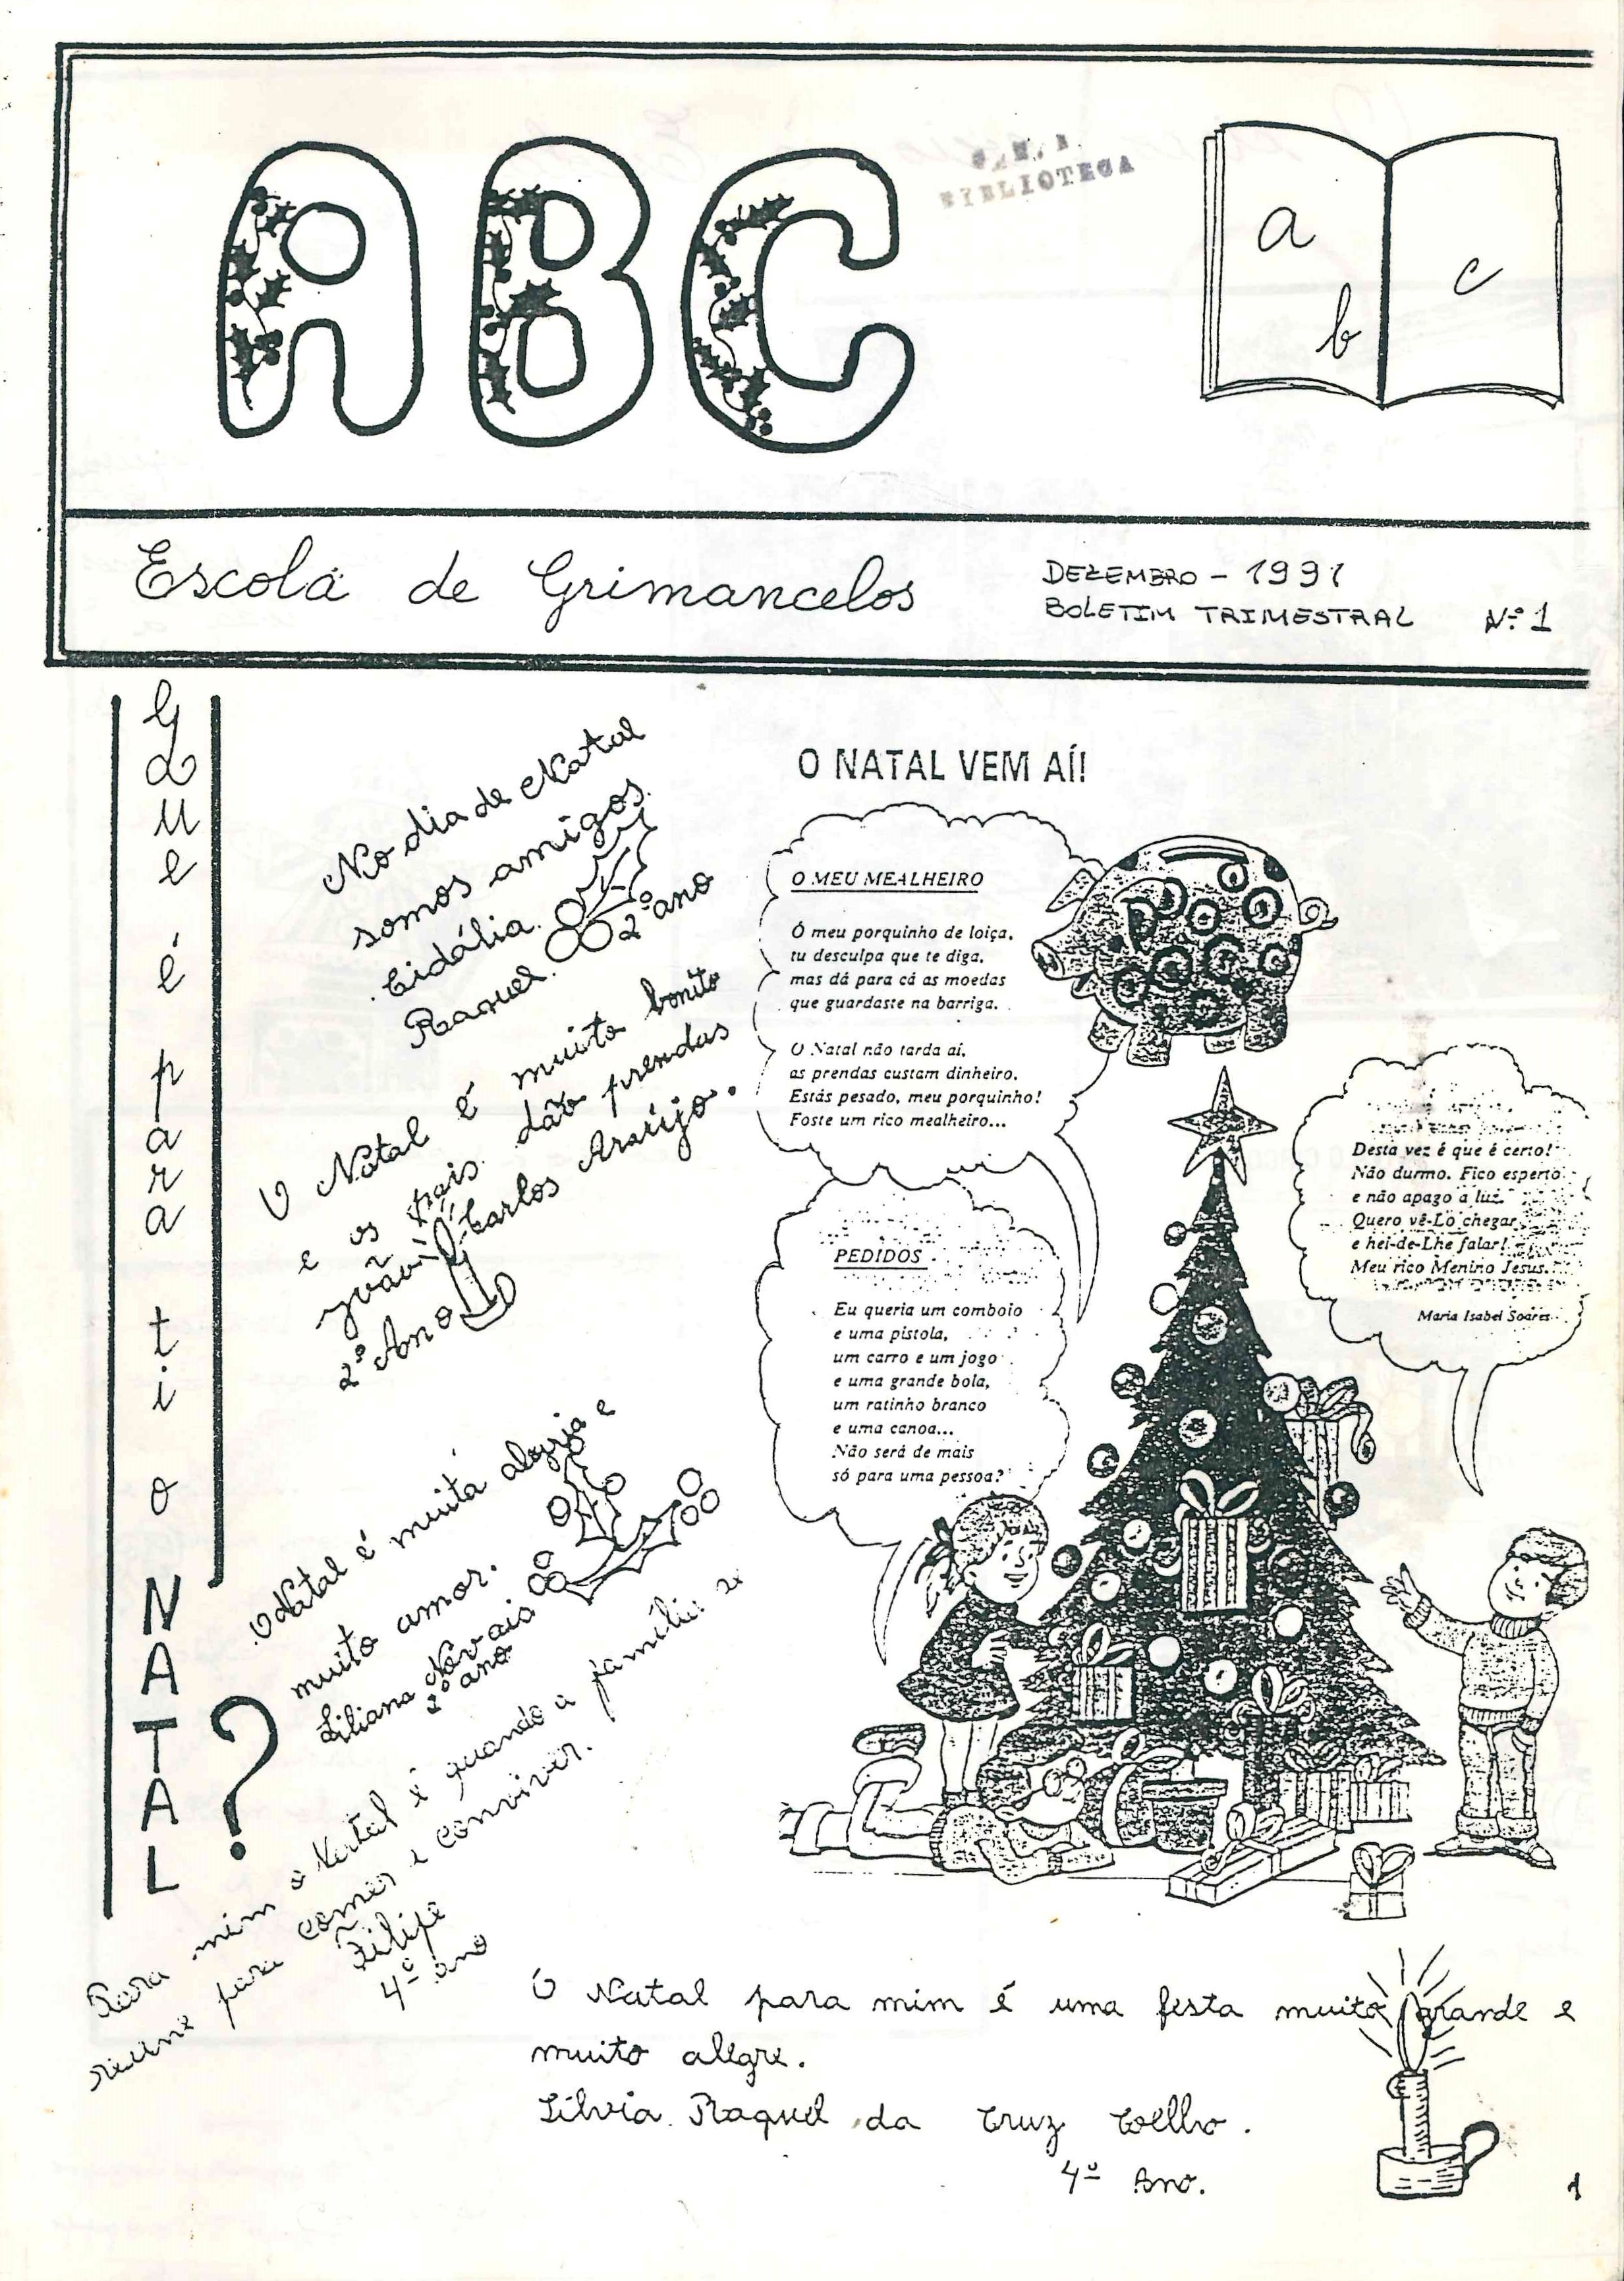 ABC
BIBLIOTECA
a
b
c
Escola de Grimancelos
DEZEMBRO - 1991
BOLETIM TRIMESTRAL Nº 1
Que é para ti o NATAL?
No dia de Natal
somos amigos.
Cidália
Raquel. 2º ano
O Natal é muito bonito
e os pais dão prendas
João Carlos Araújo.
2º Ano
O Natal é muita alegria e
muito amor.
Liliana Novais
2º ano
Para mim o Natal é quando a família se
reune para comer e conviver.
Filipe
4º ano
O NATAL VEM AÍ!
O MEU MEALHEIRO
Ó meu porquinho de loiça,
tu desculpa que te diga,
mas dá para cá as moedas
que guardaste na barriga.
O Natal não tarda aí,
as prendas custam dinheiro.
Estás pesado, meu porquinho!
Foste um rico mealheiro...
PEDIDOS
Eu queria um comboio
e uma pistola,
um carro e um jogo
e uma grande bola,
um ratinho branco
e uma canoa...
Não será de mais
só para uma pessoa?
Desta vez é que é certo!
Não durmo. Fico esperto
e não apago a luz.
Quero vê-Lo chegar
e hei-de-Lhe falar!
Meu rico Menino Jesus.
Maria Isabel Soares
O Natal para mim é uma festa muito grande e
muito alegre.
Sílvia Raquel da Cruz Coelho.
4º Ano.
1